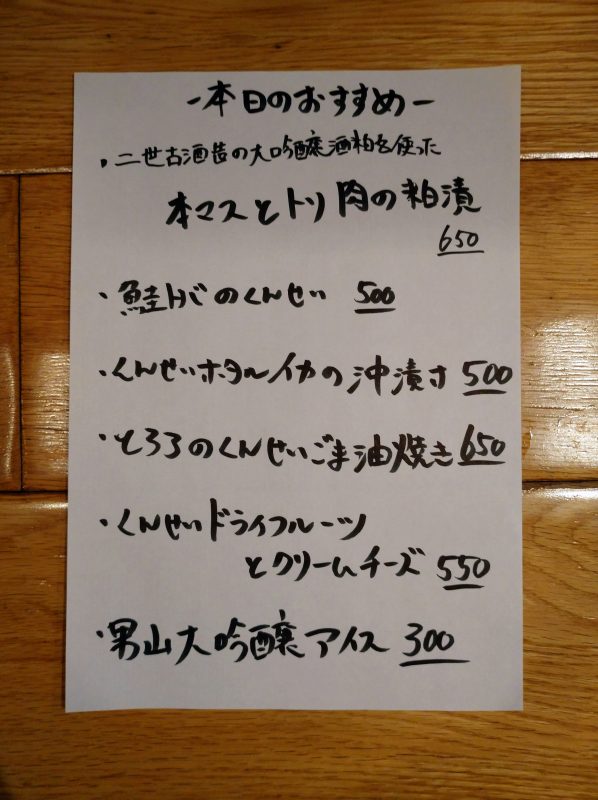 -本日のおすすめ-
・二世古酒造の大吟醸酒粕を使った
本マスとトリ肉の粕漬
650
・鮭トバのくんせい 500
・くんせいホタルイカの沖漬け 500
・とろろのくんせいごま油焼き 650
・くんせいドライフルーツ
とクリームチーズ 550
・男山大吟醸アイス 300